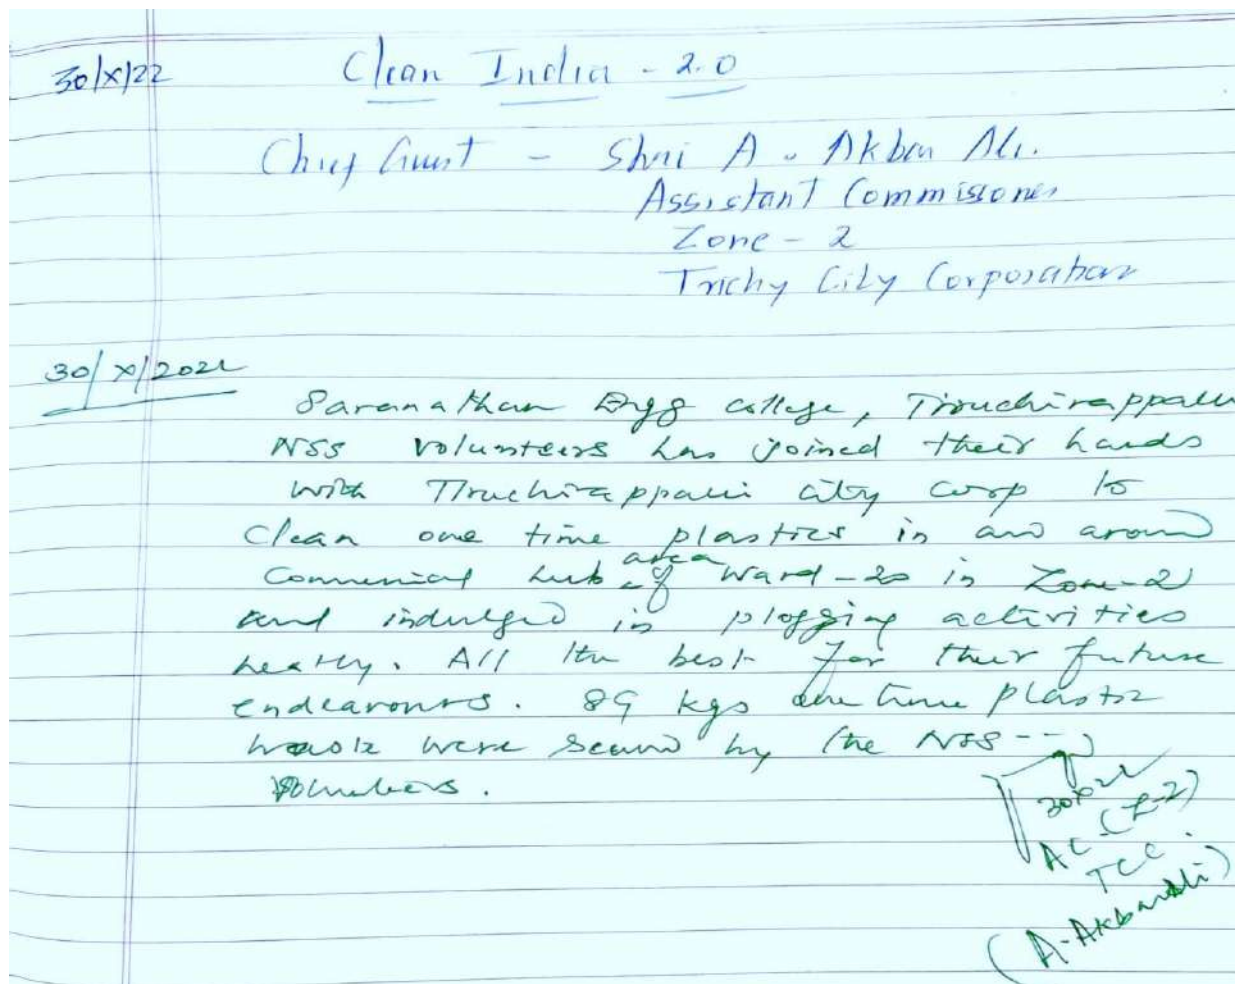 30/X/22
Clean India - 2.0
Chief Guest - Shri A. Akbar Ali.
Assistant Commissioner
Zone - 2
Trichy City Corporation
30/X/2022
Saranathan Engg college, Tiruchirappalli
NSS Volunteers has joined their hands
with Tiruchirappalli city corp to
clean one time plastics in and around
Commercial hub area of Ward-20 in Zone-2
and indulged in plogging activities
. All the best for their future
endeavours. 89 kgs one time plastic
were by the NSS ---
Volunteers.
30/X/22
AC-(Z-2)
TCC.
(A-Akbar Ali)